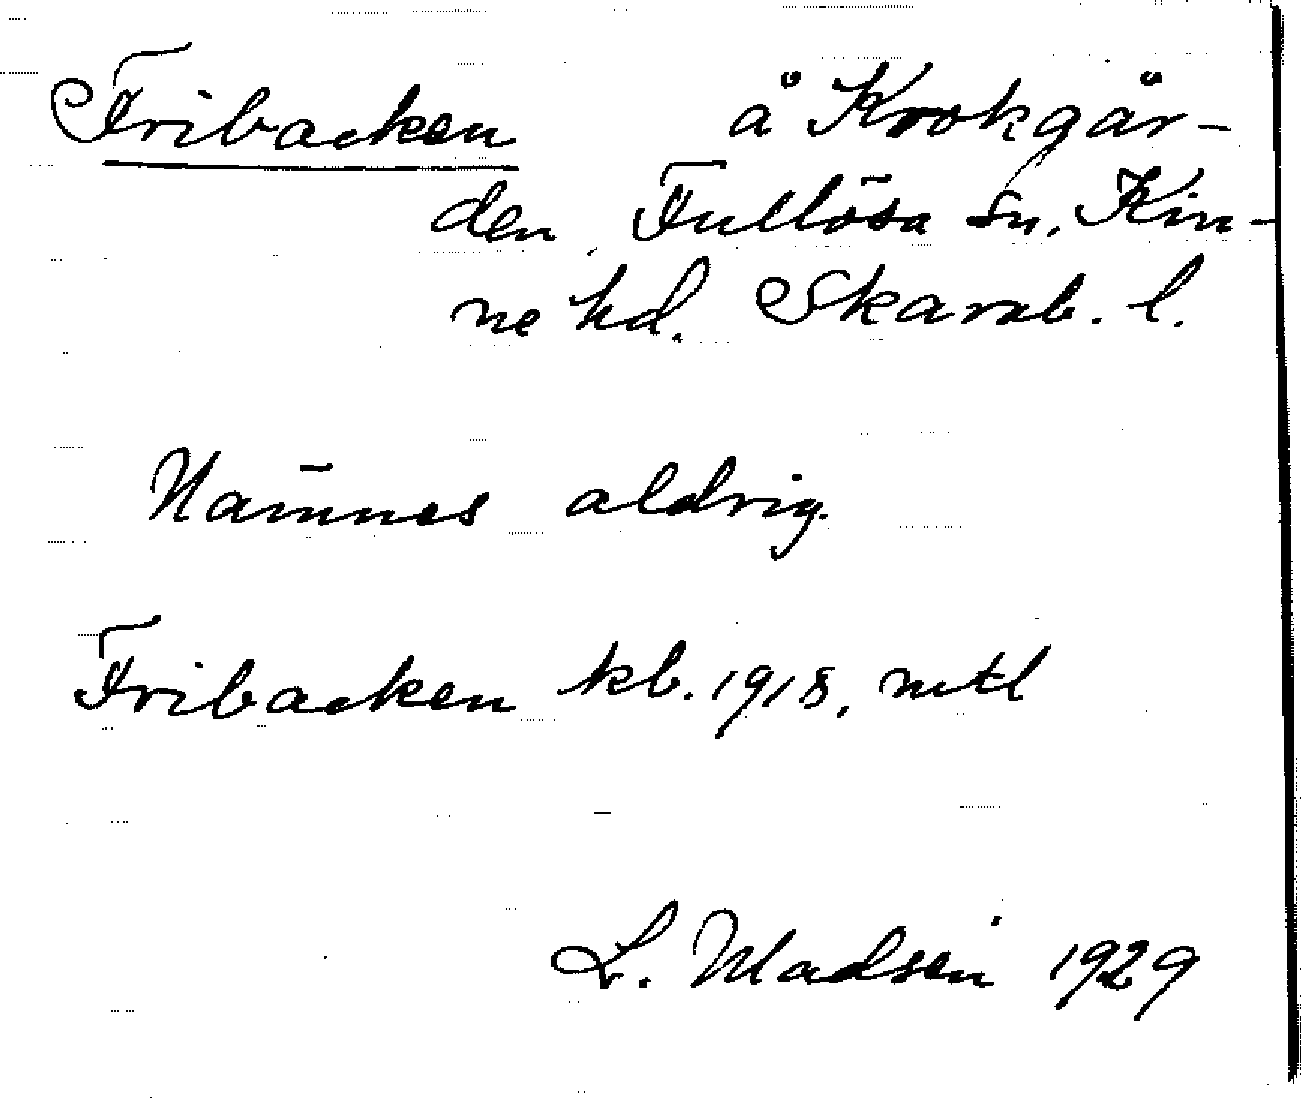 Fribacken å Krokgår-
den, Fullösa sn, Kin-
ne hd. Skarab. l.
Nämnes aldrig.
Fribacken kb. 1918, mtl
L. Madsén 1929